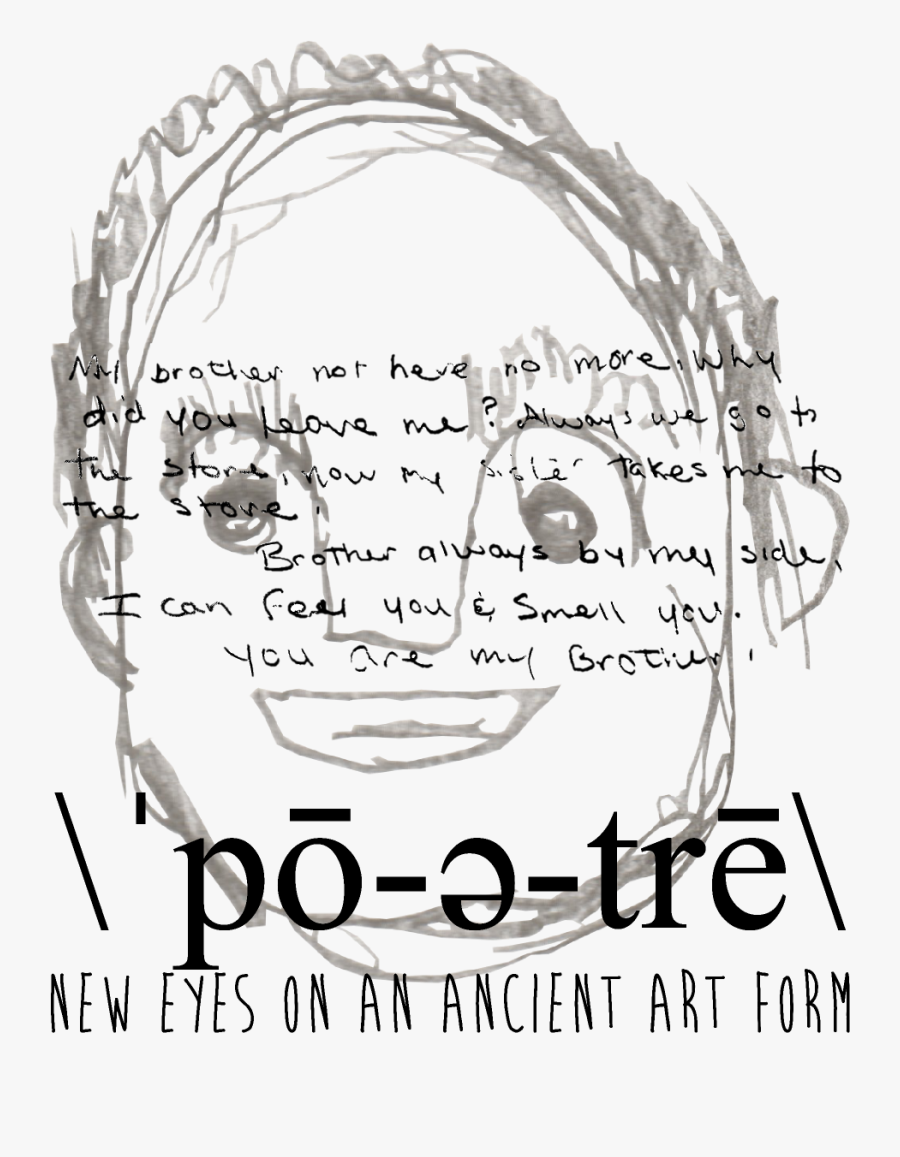 My brother not here no more. Why
did you leave me? Always we go to
the store, now my sister takes me to
the store.
Brother always by my side,
I can feel you & Smell you.
You are my Brother!
\ˈpō-ə-trē\
NEW EYES ON AN ANCIENT ART FORM